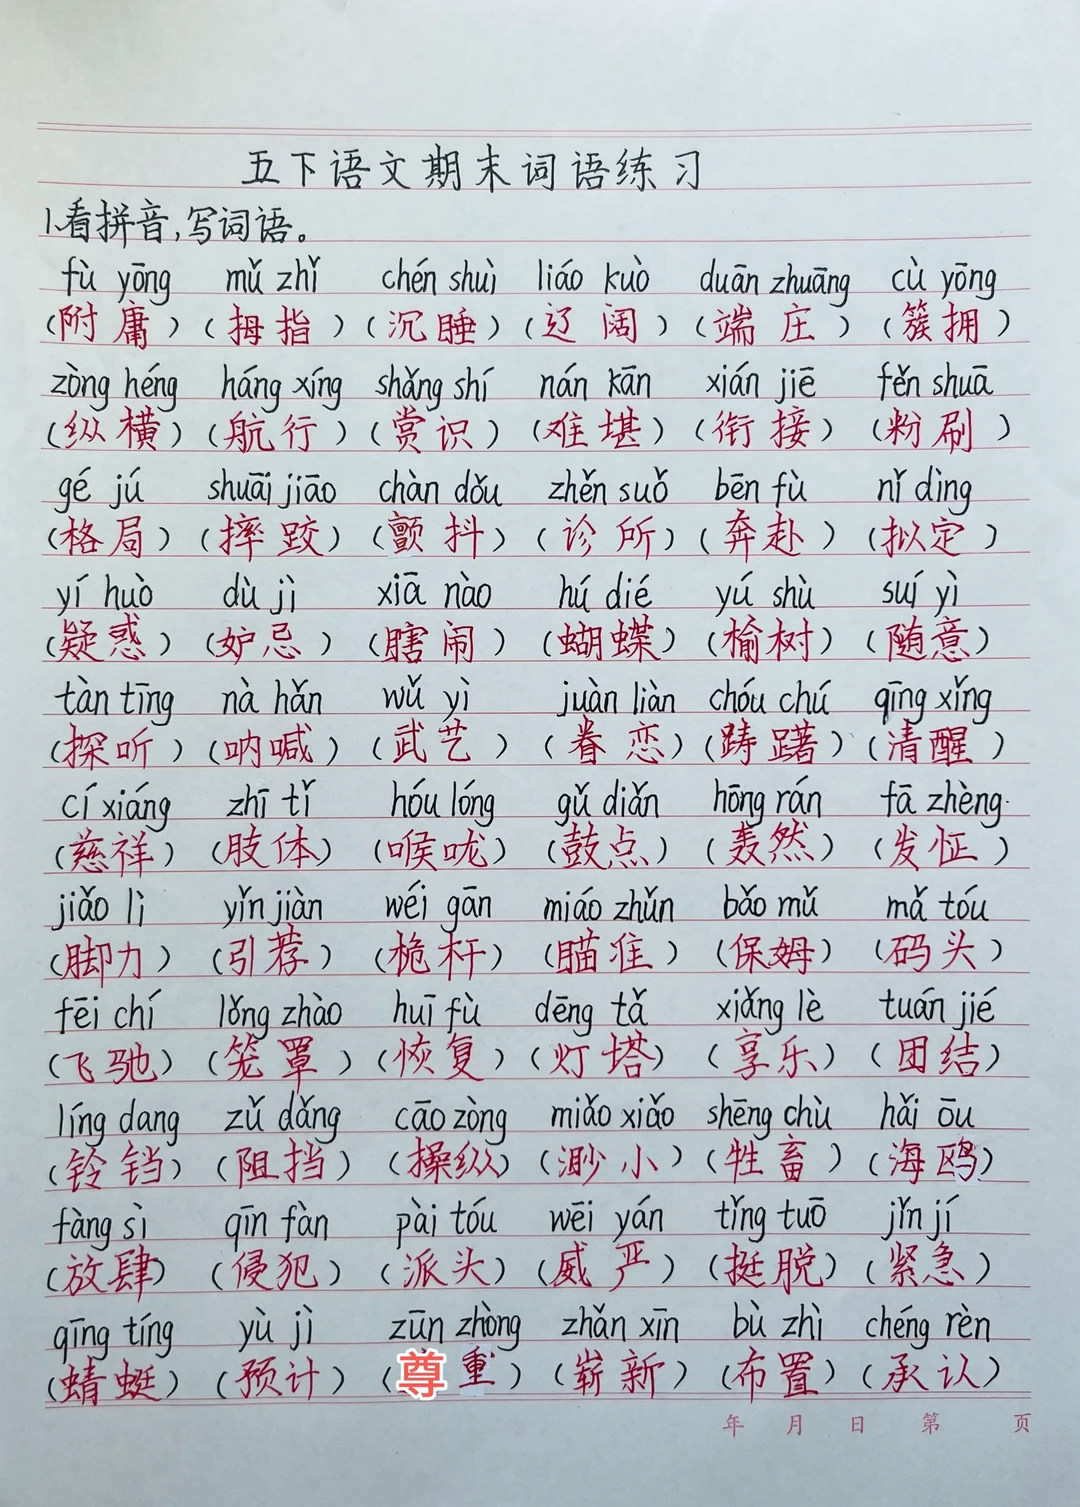 五下语文期末词语练习
1.看拼音,写词语。
fù yōng mǔ zhǐ chén shuì liáo kuò duān zhuāng cù yōng
(附庸) (拇指) (沉睡) (辽阔) (端庄) (簇拥)
zòng héng háng xíng shǎng shí nán kān xián jiē fěn shuā
(纵横) (航行) (赏识) (难堪) (衔接) (粉刷)
gé jú shuāi jiāo chàn dǒu zhěn suǒ bēn fù nǐ dìng
(格局) (摔跤) (颤抖) (诊所) (奔赴) (拟定)
yí huò dù jì xiā nào hú dié yú shù suí yì
(疑惑) (妒忌) (瞎闹) (蝴蝶) (榆树) (随意)
tàn tīng nà hǎn wǔ yì juàn liàn chóu chú qīng xǐng
(探听) (呐喊) (武艺) (眷恋) (踌躇) (清醒)
cí xiáng zhī tǐ hóu lóng gǔ diǎn hōng rán fā zhèng
(慈祥) (肢体) (喉咙) (鼓点) (轰然) (发怔)
jiǎo lì yǐn jiàn wéi gān miáo zhǔn bǎo mǔ mǎ tóu
(脚力) (引荐) (桅杆) (瞄准) (保姆) (码头)
fēi chí lǒng zhào huī fù dēng tǎ xiǎng lè tuán jié
(飞驰) (笼罩) (恢复) (灯塔) (享乐) (团结)
líng dang zǔ dǎng cāo zòng miǎo xiǎo shēng chù hǎi ōu
(铃铛) (阻挡) (操纵) (渺小) (牲畜) (海鸥)
fàng sì qīn fàn pài tóu wēi yán tǐng tuō jǐn jí
(放肆) (侵犯) (派头) (威严) (挺脱) (紧急)
qīng tíng yù jì zūn zhòng zhǎn xīn bù zhì chéng rèn
(蜻蜓) (预计) (尊重) (崭新) (布置) (承认)
年 月 日 第 页